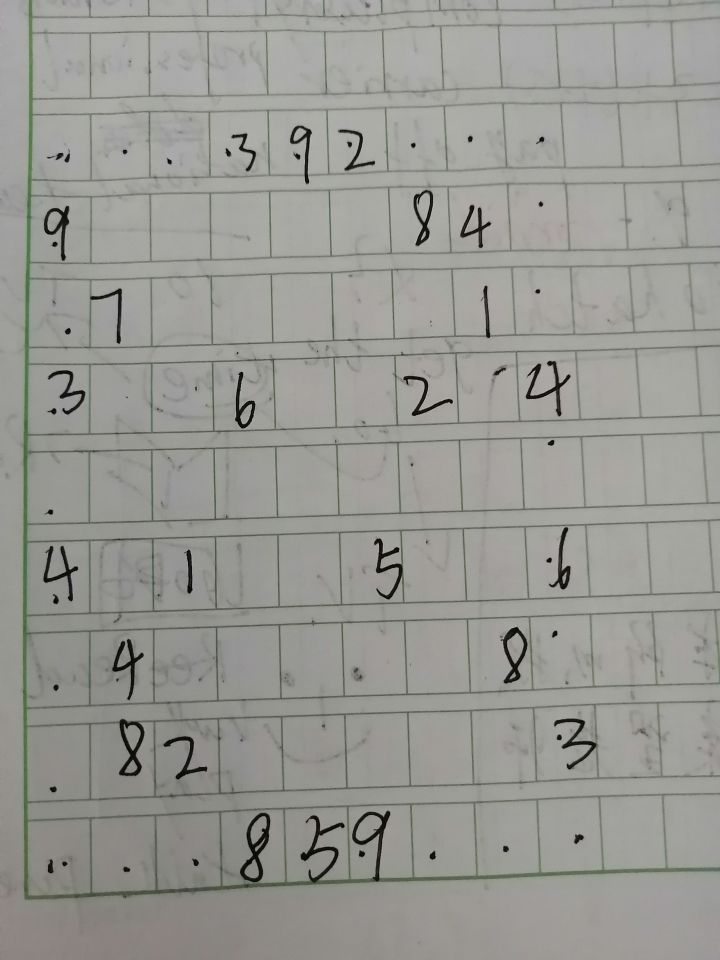 . . . 3 9 2 . . .
9 8 4 .
. 7 1 .
3 6 2 4
. .
4 1 5 6
. 4 8 .
. 8 2 3
. . . 8 5 9 . . .